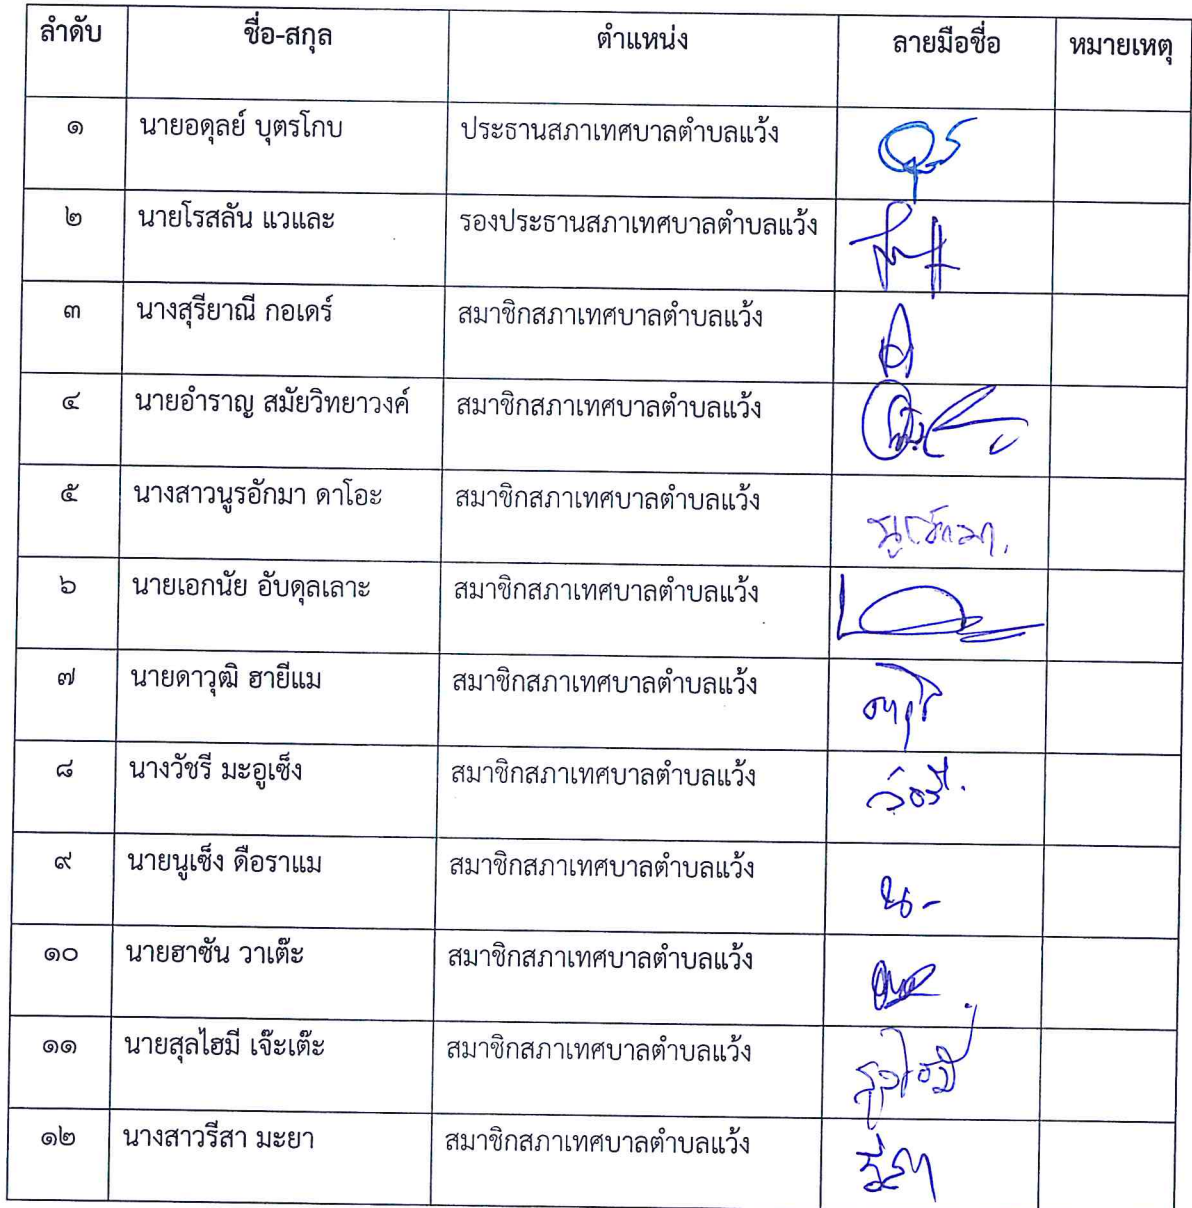 ลำดับ ชื่อ-สกุล ตำแหน่ง ลายมือชื่อ หมายเหตุ
๑ นายอดุลย์ บุตรโกบ ประธานสภาเทศบาลตำบลแว้ง
๒ นายโรสลัน แวและ รองประธานสภาเทศบาลตำบลแว้ง
๓ นางสุรียาณี กอเดร์ สมาชิกสภาเทศบาลตำบลแว้ง
๔ นายอำราญ สมัยวิทยาวงค์ สมาชิกสภาเทศบาลตำบลแว้ง
๕ นางสาวนูรอักมา ดาโอะ สมาชิกสภาเทศบาลตำบลแว้ง นูรอักมา
๖ นายเอกนัย อับดุลเลาะ สมาชิกสภาเทศบาลตำบลแว้ง
๗ นายดาวุฒิ ฮายีแม สมาชิกสภาเทศบาลตำบลแว้ง
๘ นางวัชรี มะอูเซ็ง สมาชิกสภาเทศบาลตำบลแว้ง วัชรี
๙ นายนูเซ็ง ดือราแม สมาชิกสภาเทศบาลตำบลแว้ง
๑๐ นายฮาซัน วาเต๊ะ สมาชิกสภาเทศบาลตำบลแว้ง
๑๑ นายสุลไฮมี เจ๊ะเต๊ะ สมาชิกสภาเทศบาลตำบลแว้ง สุลไฮมี
๑๒ นางสาวรีสา มะยา สมาชิกสภาเทศบาลตำบลแว้ง รีสา